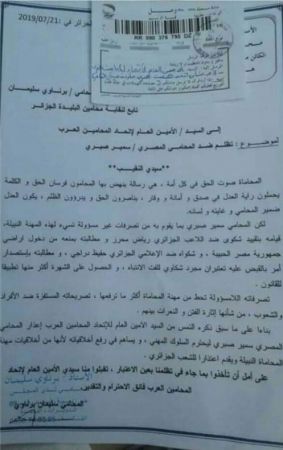 الجزائر في : 2019/07/21
RR 980 376 795 DZ
المحامي / برناوي سليمان
تابع لنقابة محامين البليدة الجزائر
إلى السيد / الأمين العام لإتحاد المحامين العرب
الموضوع : تظلم ضد المحامي المصري / سمير صبري
**سيدي النقيب**
المحاماة صوت الحق في كل أمة ، هي رسالة ينهض بها المحامون فرسان الحق و الكلمة
يحملون راية العدل في صدق و أمانة و وقار ، يناصرون الحق و يدرؤون الظلم ، يكون العدل
ضمير المحامي و غايته و أمانه .
لكن المحامي سمير صبري بما يقوم به من تصرفات غير مسؤولة تسيء لهذه المهنة النبيلة،
قيامه بتقييد شكوى ضد اللاعب الجزائري رياض محرز و مطالبته بمنعه من دخول اراضي
جمهورية مصر الحبيبة ، و شكواه ضد الإعلامي الجزائري حفيظ دراجي ، و مطالبته بإستصدار
أمر بالقبض عليه تعتبران مجرد شكاوي للفت الانتباه ، و الحصول على الشهرة أكثر منها تطبيقا
للقانون .
تصرفاته اللامسؤولة تحط من مهنة المحاماة أكثر ما ترفعها ، تصريحاته المستفزة ضد الأفراد
والشعوب ، من شأنها إثارة الفتن و النعرات بينهم .
بناءا على ما سبق ذكره التمس من السيد الأمين العام لإتحاد المحامين العرب إعذار المحامي
المصري سمير صبري ليحترم السلوك المهني ، و يساهم في رفع أخلاقياته لأنها من أخلاقيات مهنة
المحاماة النبيلة ويقدم اعتذارا للشعب الجزائري .
على أمل أن تأخذوا بما جاء في تظلمنا بعين الاعتبار ، تقبلوا منا سيدي الأمين العام لإتحاد
المحامين العرب فائق الاحترام والتقدير
الأستاذ برناوي سليمان
المحامي سليمان برناوي